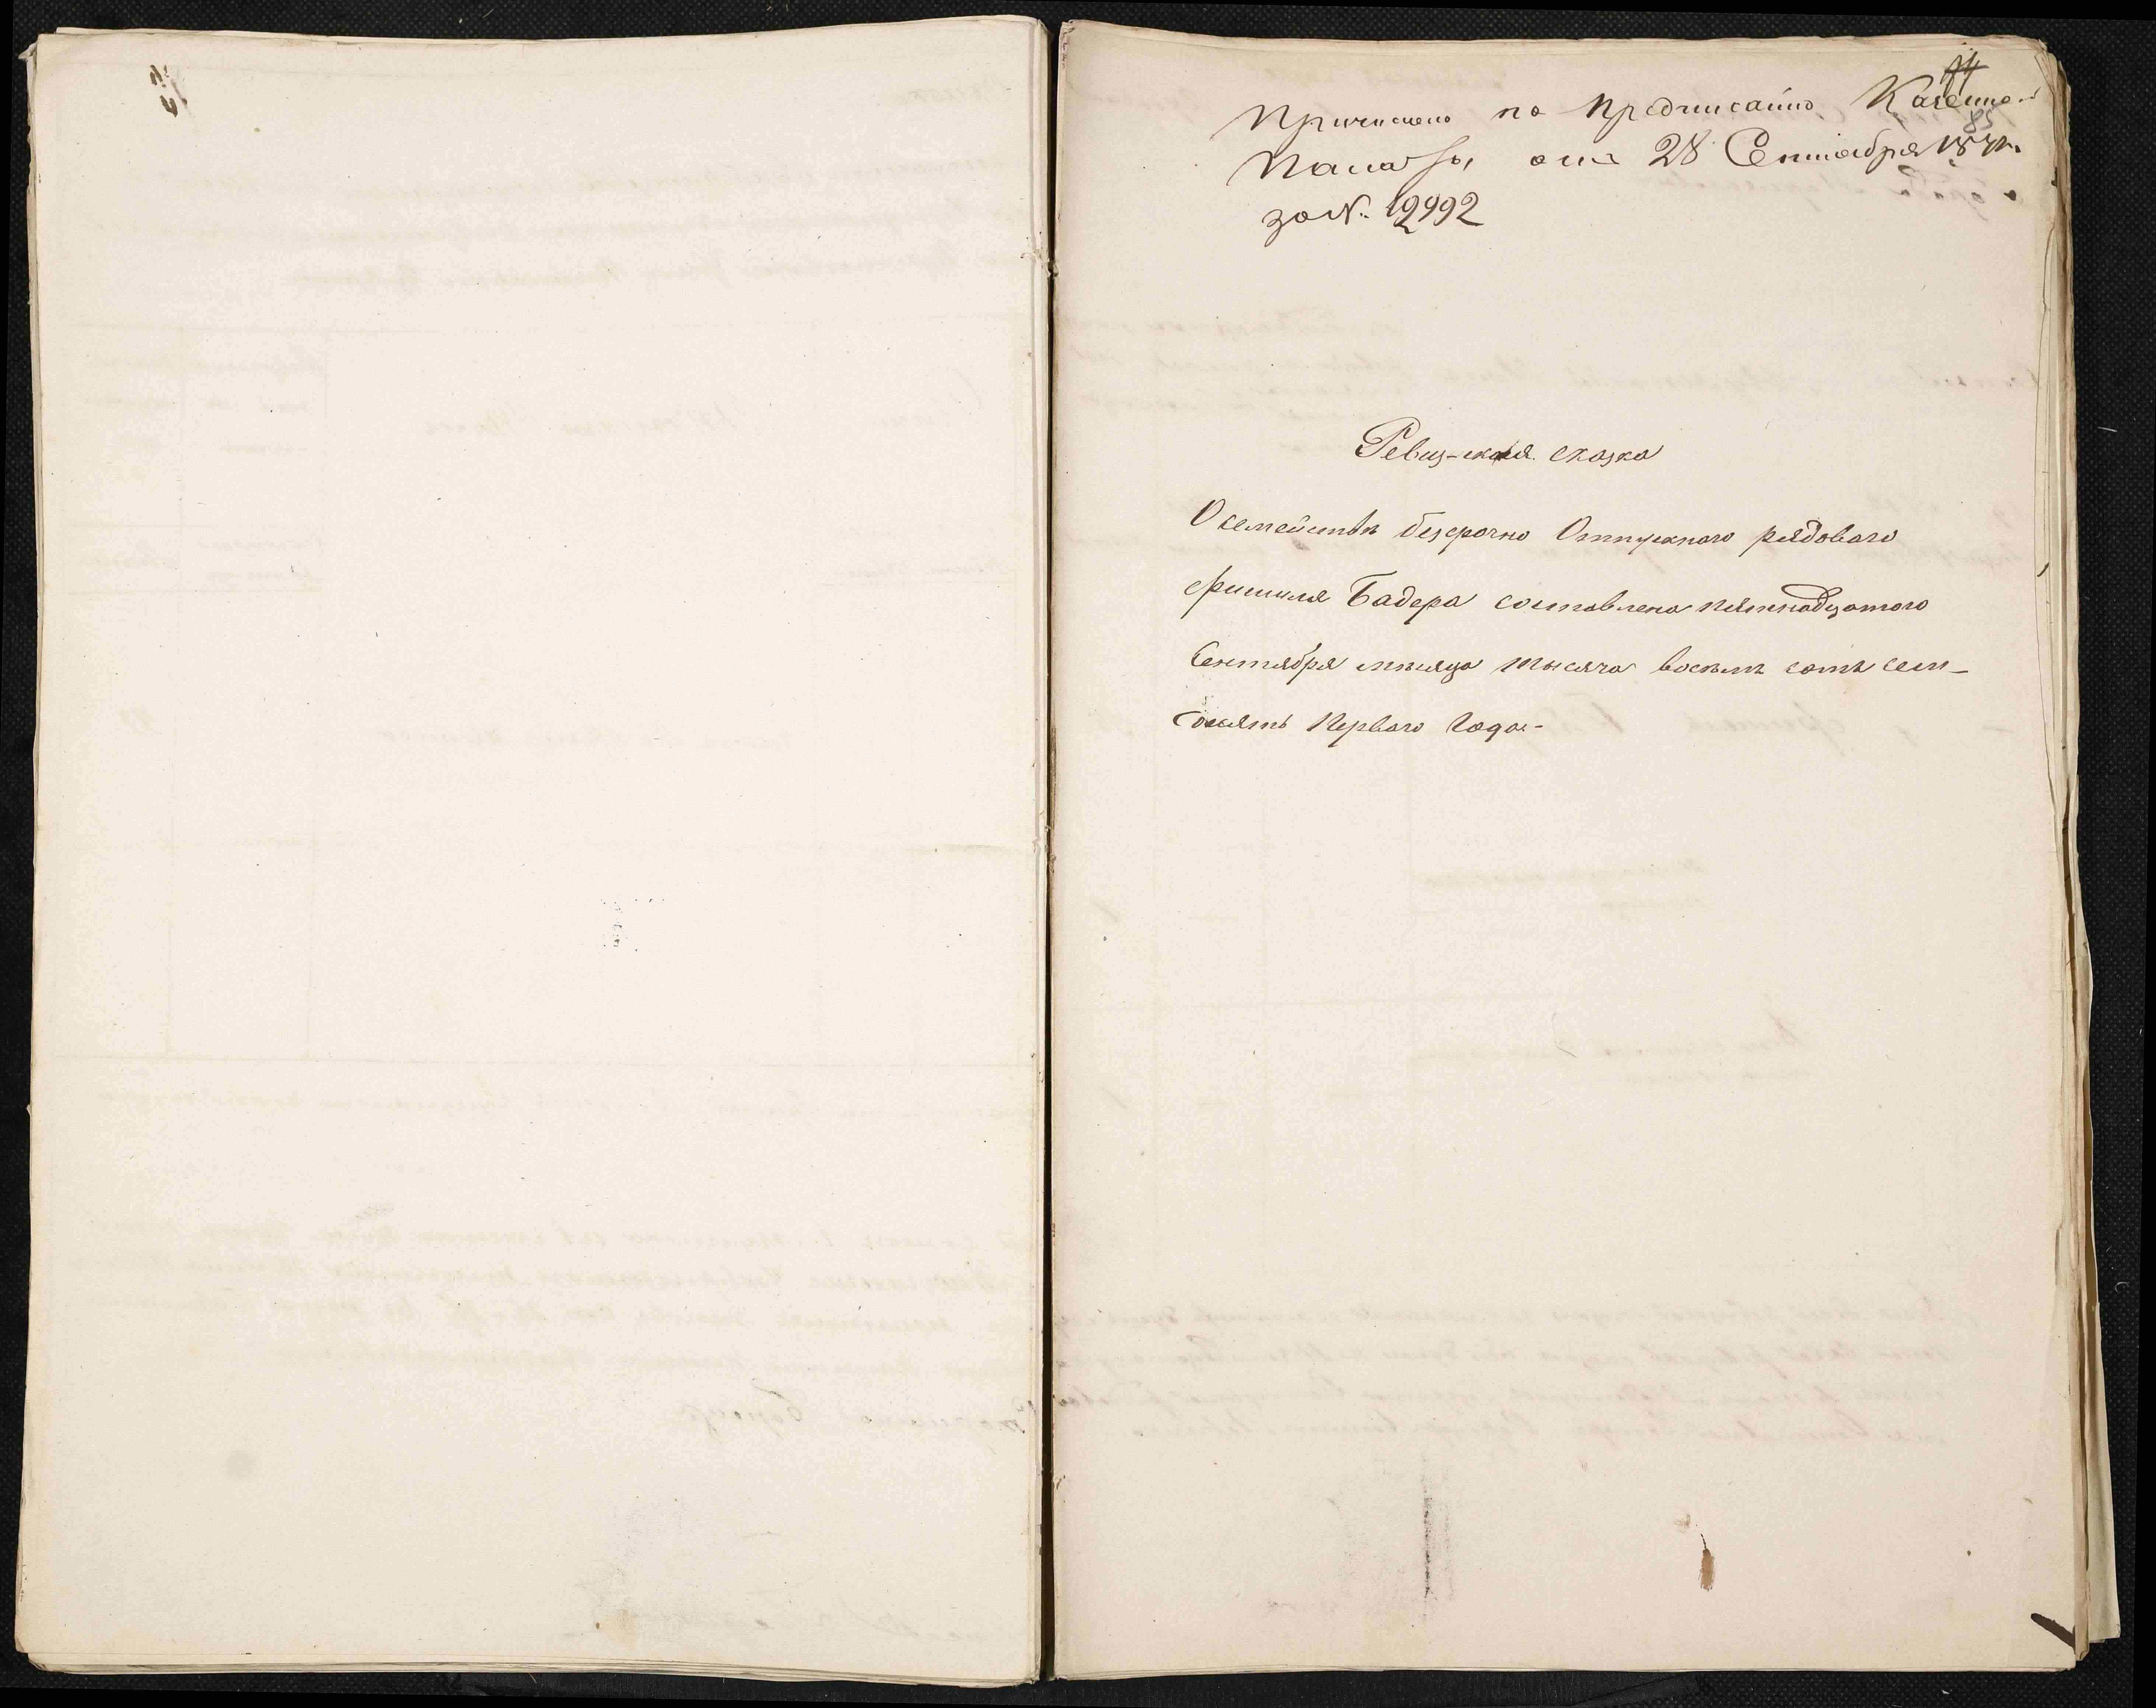 Причислено по предписанію Казенной
Палаты отъ 28 Сентября 1871 г.
за №. 12992
85
Ревизская сказка
О семействѣ безсрочно Отпускнаго рядоваго
Фишиля Бадера составлена пятнадцатаго
Сентября мѣсяца тысяча восемь сотъ сем-
десять Перваго Года.-